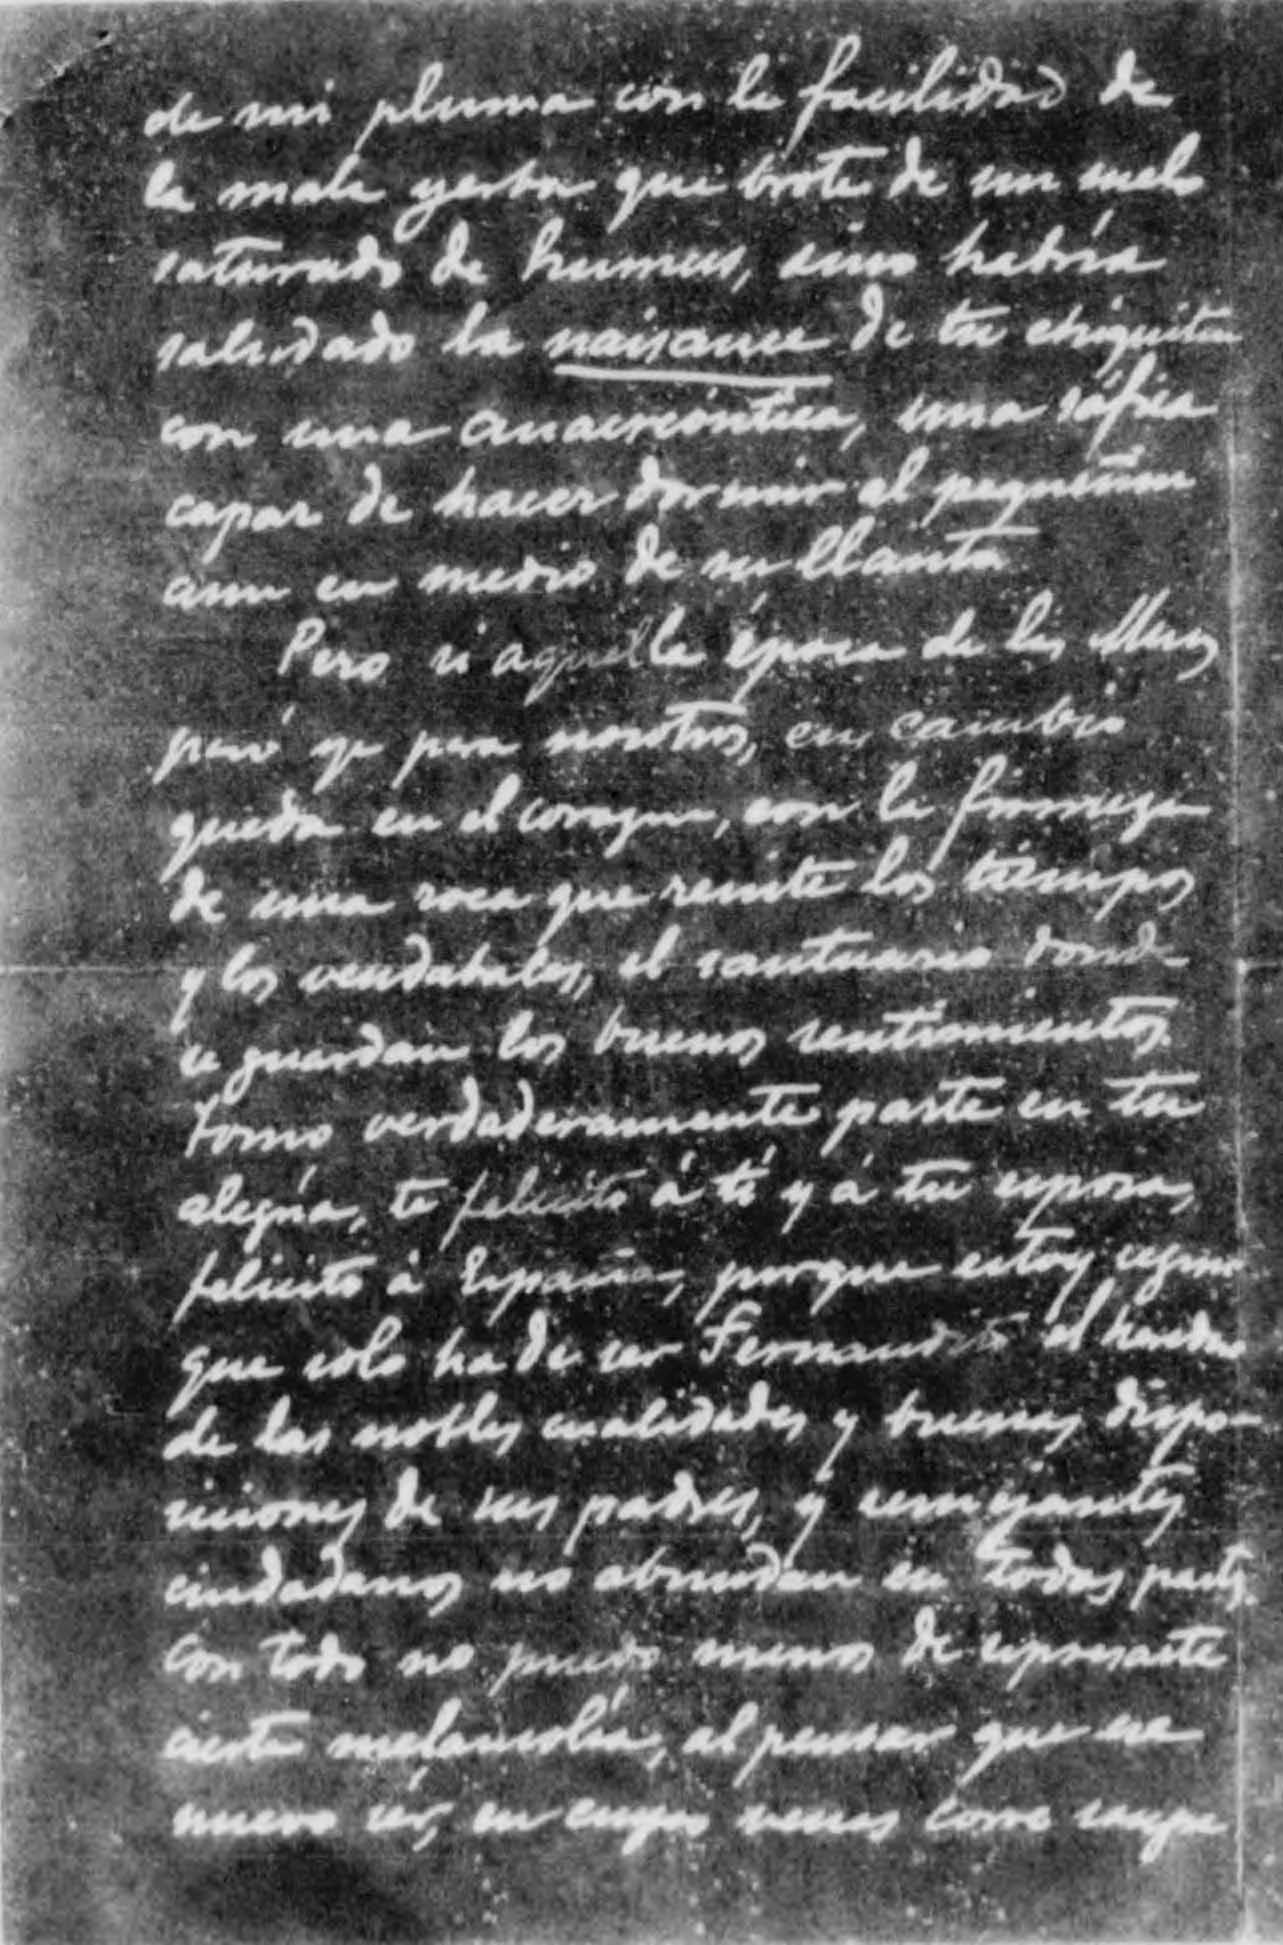 de mi pluma con la facilidad de
la mala yerba que brota de un suelo
saturado de humus, sino habría
saludado la naisance de tu chiquitin
con una anacreóntica, una sáfica
capaz de hacer dormir al pequeñin
aun en medio de su llanto.
Pero si aquella época de las Musas
pasó ya para nosotros, en cambio
queda en el corazon, con la firmeza
de una roca que resiste los tiempos
y los vendabales, el santuario donde
se guardan los buenos sentimientos.
Tomo verdaderamente parte en tu
alegría, te felicito á tí y á tu esposa,
felicito á España, porque estoy seguro
que solo ha de ser Fernandito el heredero
de las nobles cualidades y buenas dispo-
siciones de sus padres, y semejantes
ciudadanos no abundan en todas partes.
Con todo no puedo menos de espresarte
cierta melancolía, al pensar que ese
nuevo ser, en cuyas venas corre sangre